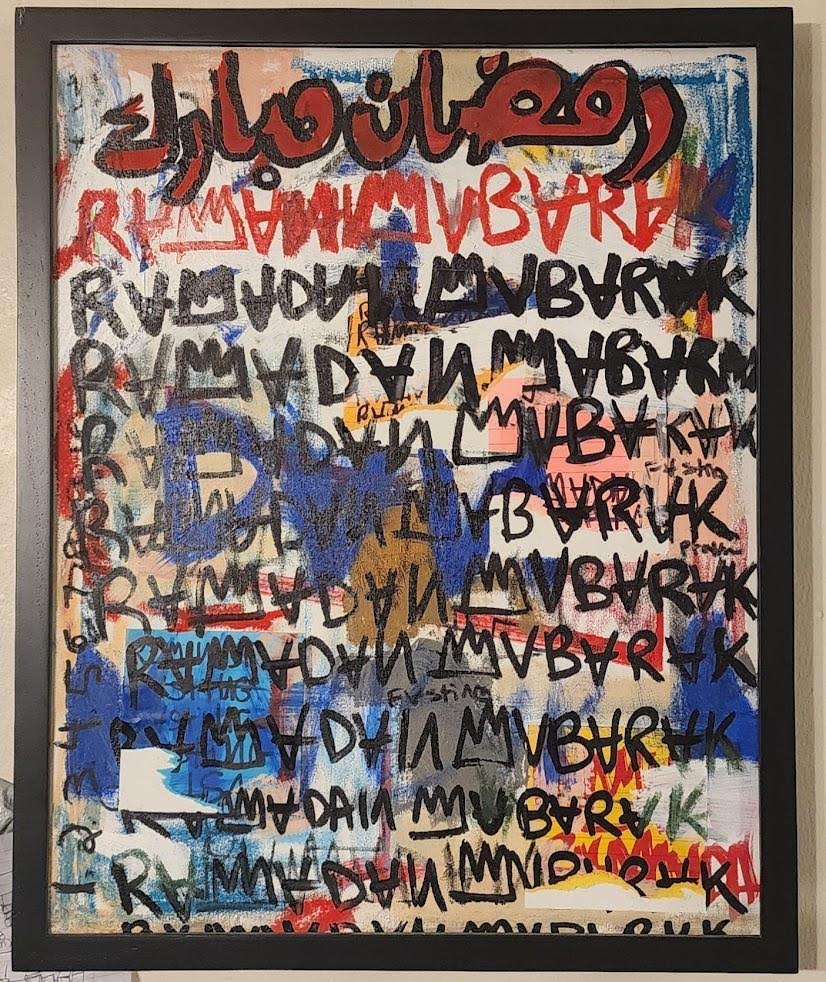 رمضان مبارك
RAMADAN MUBARAK
RAMADAN MUBARAK
RAMADAN MUBARA
RAMADAN MUBARAK
Fasting
RAMADAN MUBARAK
RAMADAN MUBARAK
RAMADAN MUBARAK
Fasting
RAMADAN MUBARAK
RAMADAN MUBARAK
RAMADAN MUBARAK
RAMADAN MUBARAK
1 2 3 4 5 6 7 8